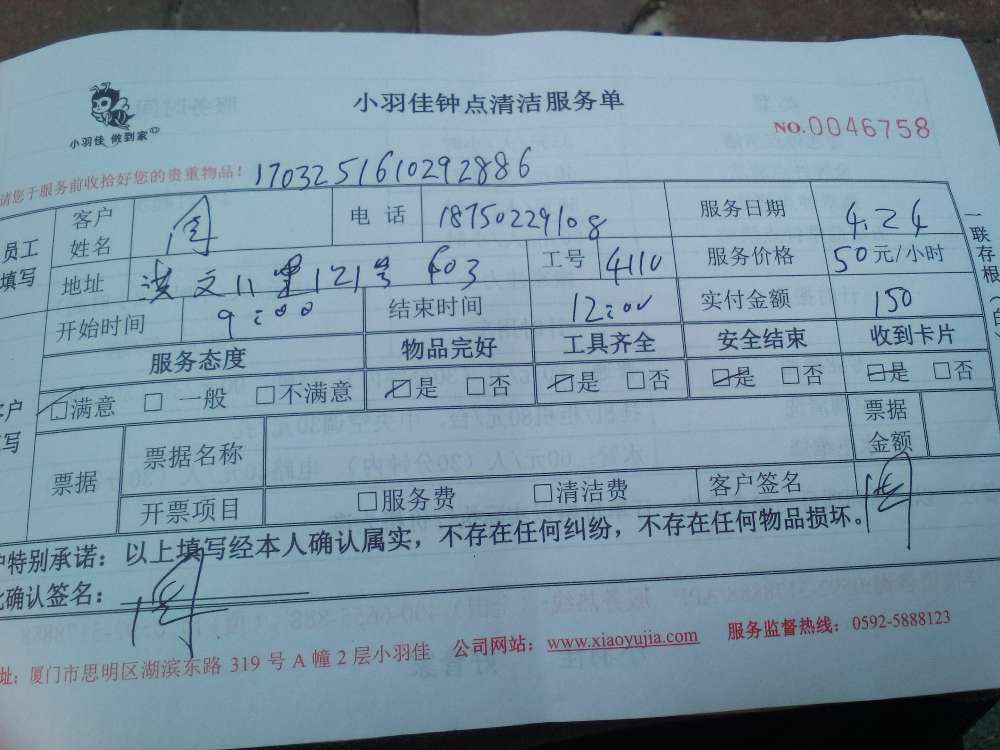 小羽佳 做到家
小羽佳钟点清洁服务单
NO.0046758
请您于服务前收拾好您的贵重物品！
1703251610292886
员工填写
客户姓名 周 电话 18750229108 服务日期 4.24
地址 洪文八里121号 603 工号 4110 服务价格 50元/小时
开始时间 9:00 结束时间 12:00 实付金额 150
服务态度 物品完好 工具齐全 安全结束 收到卡片
□满意 □一般 □不满意 □是 □否 □是 □否 □是 □否 □是 □否
票据 票据名称 票据金额
开票项目 □服务费 □清洁费 客户签名
户特别承诺：以上填写经本人确认属实，不存在任何纠纷，不存在任何物品损坏。
确认签名：
址：厦门市思明区湖滨东路 319 号 A 幢 2 层小羽佳 公司网站：www.xiaoyujia.com 服务监督热线：0592-5888123
一联存根